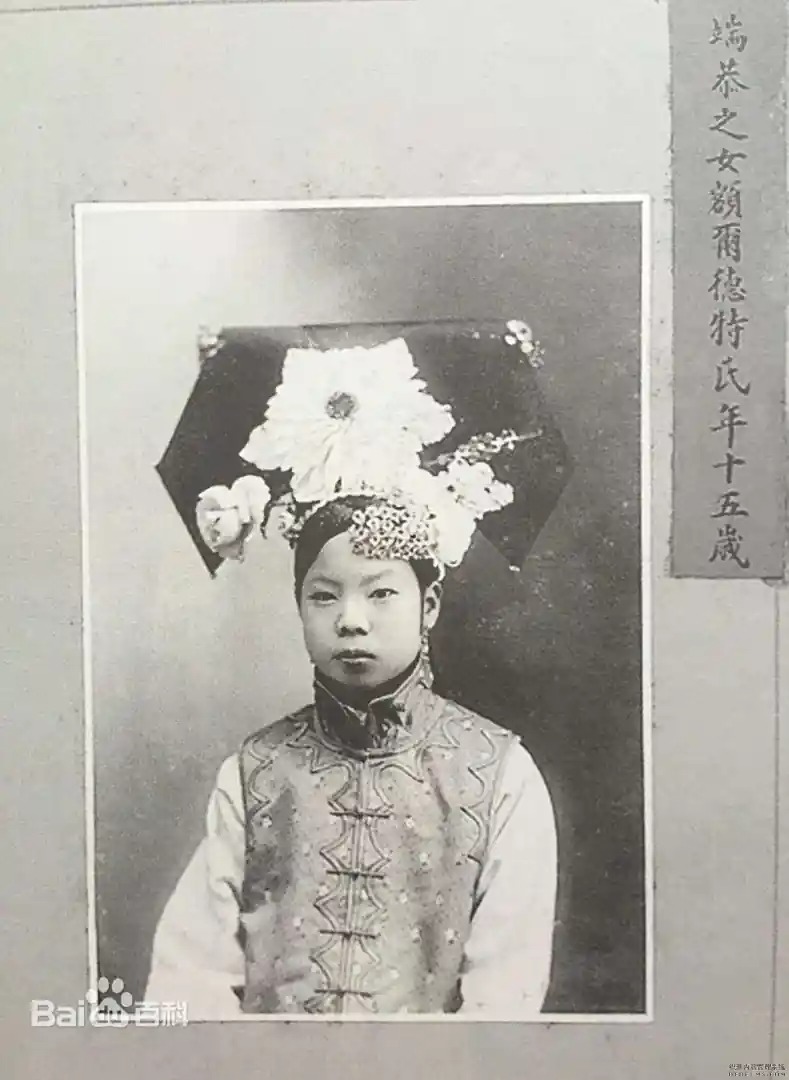 端恭之女額爾德特氏年十五歲
Bai du 百科